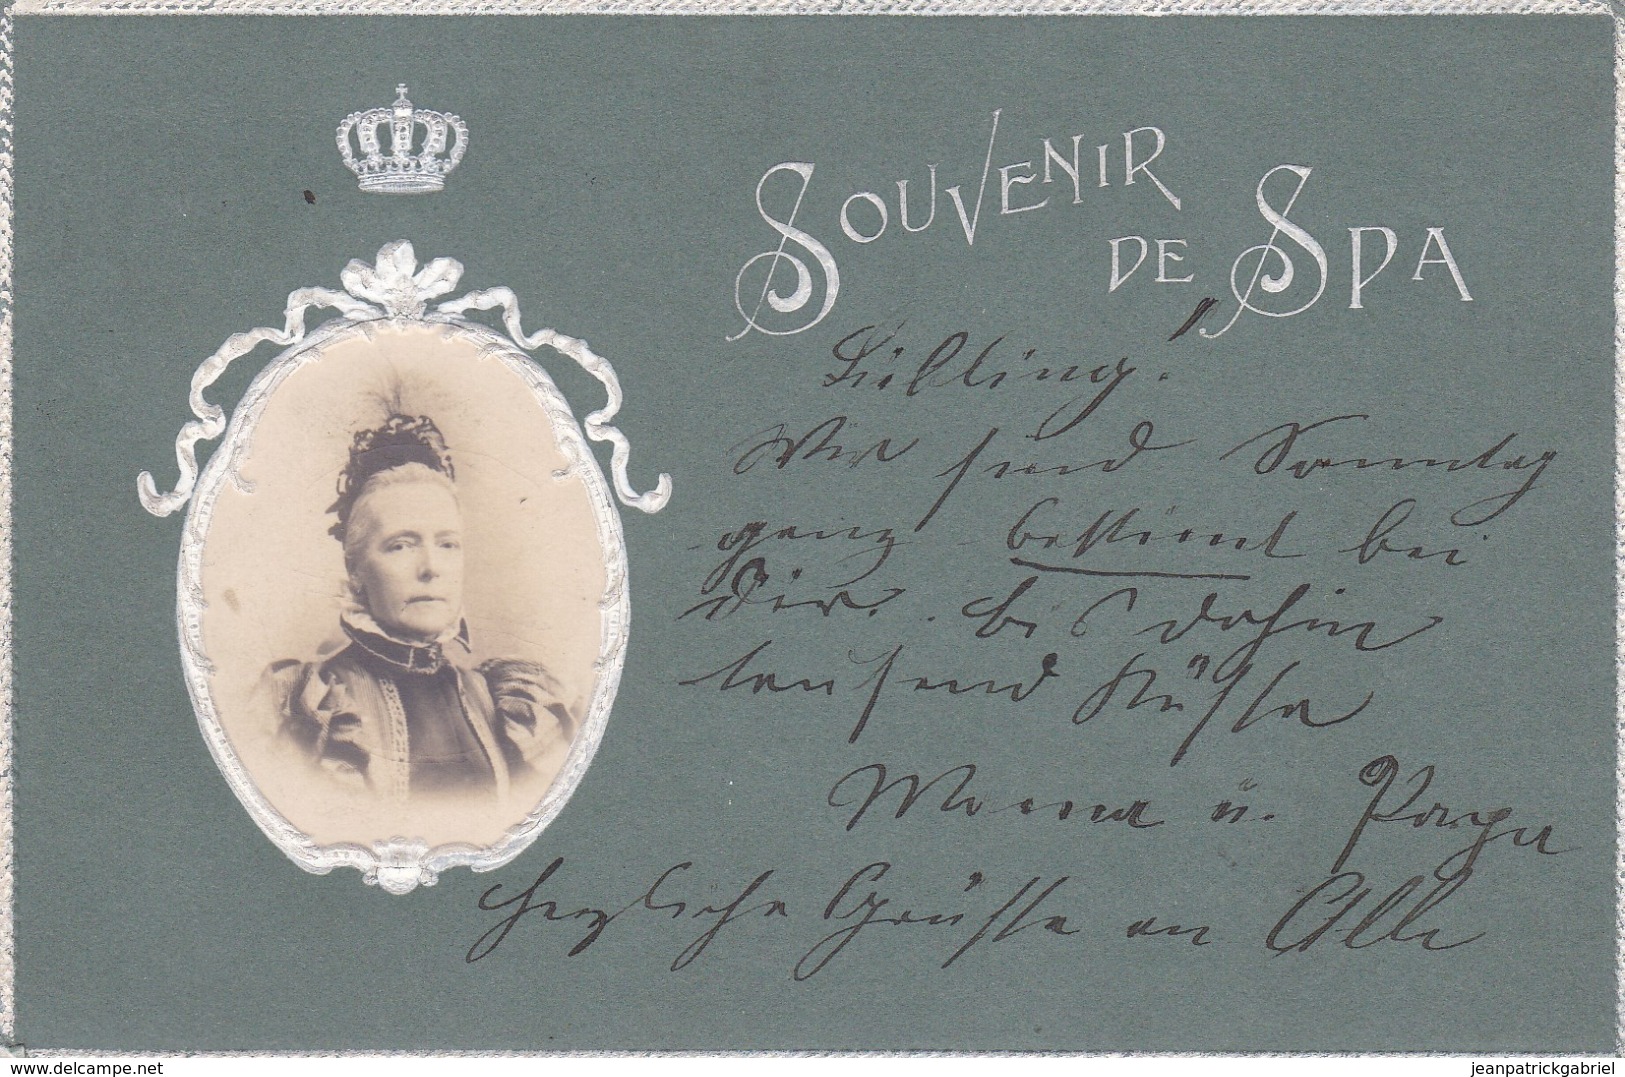 SOUVENIR
DE SPA
Liebling!
Wir sind Sonntag
ganz bestimmt bei
Dir. bis dahin
tausend Küsse
Mama u. Papa
herzliche Grüsse an Alle
www.delcampe.net
jeanpatrickgabriel